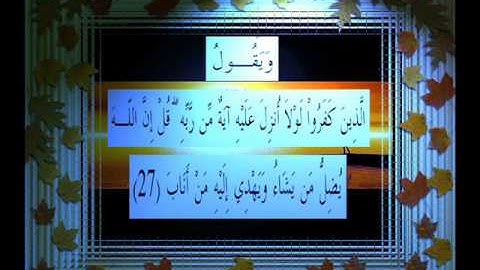 وَيَقُــولُ
الَّذِينَ كَفَرُواْ لَوْلاَ أُنزِلَ عَلَيْهِ آيَةٌ مِّن رَّبِّهِ ۗ قُلْ إِنَّ اللّــهَ
يُضِلُّ مَن يَشَاءُ وَيَهْدِي إِلَيْهِ مَنْ أَنَابَ (27)